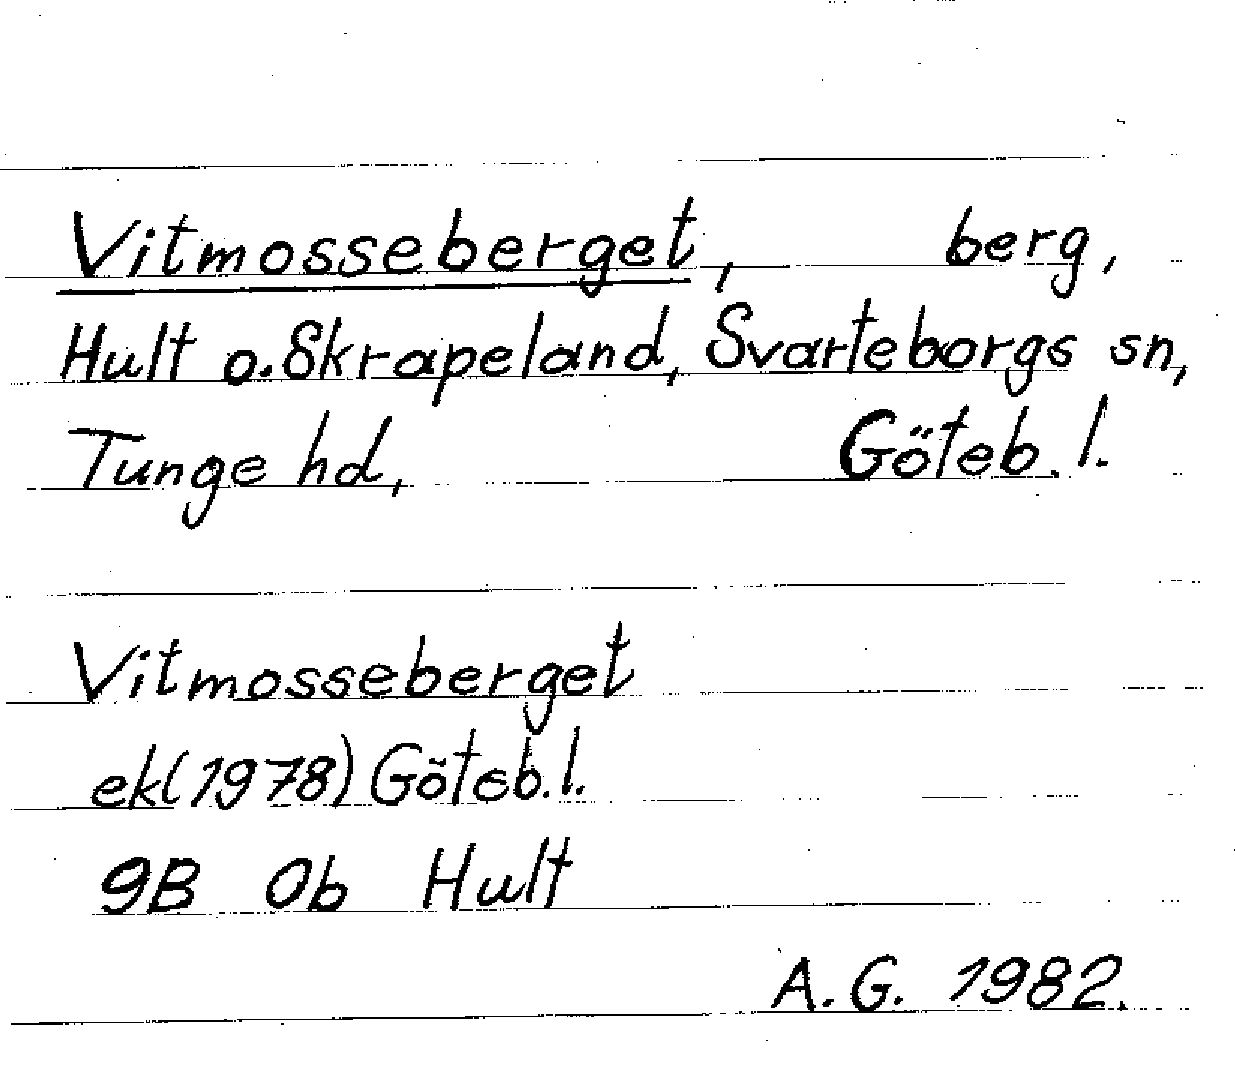 Vitmosseberget, berg,
Hult o. Skrapeland, Svarteborgs sn,
Tunge hd, Göteb. l.
Vitmosseberget
ek(1978) Göteb. l.
9B 0b Hult
A.G. 1982.